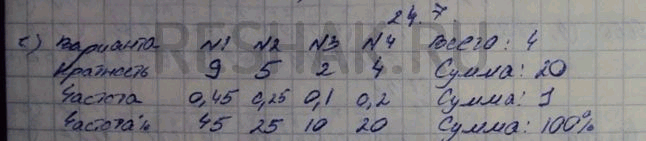 24.7
с) Варианта N1 N2 N3 N4 Всего: 4
Кратность 9 5 2 4 Сумма: 20
Частота 0,45 0,25 0,1 0,2 Сумма: 1
Частота % 45 25 10 20 Сумма: 100%
RESHAK.RU